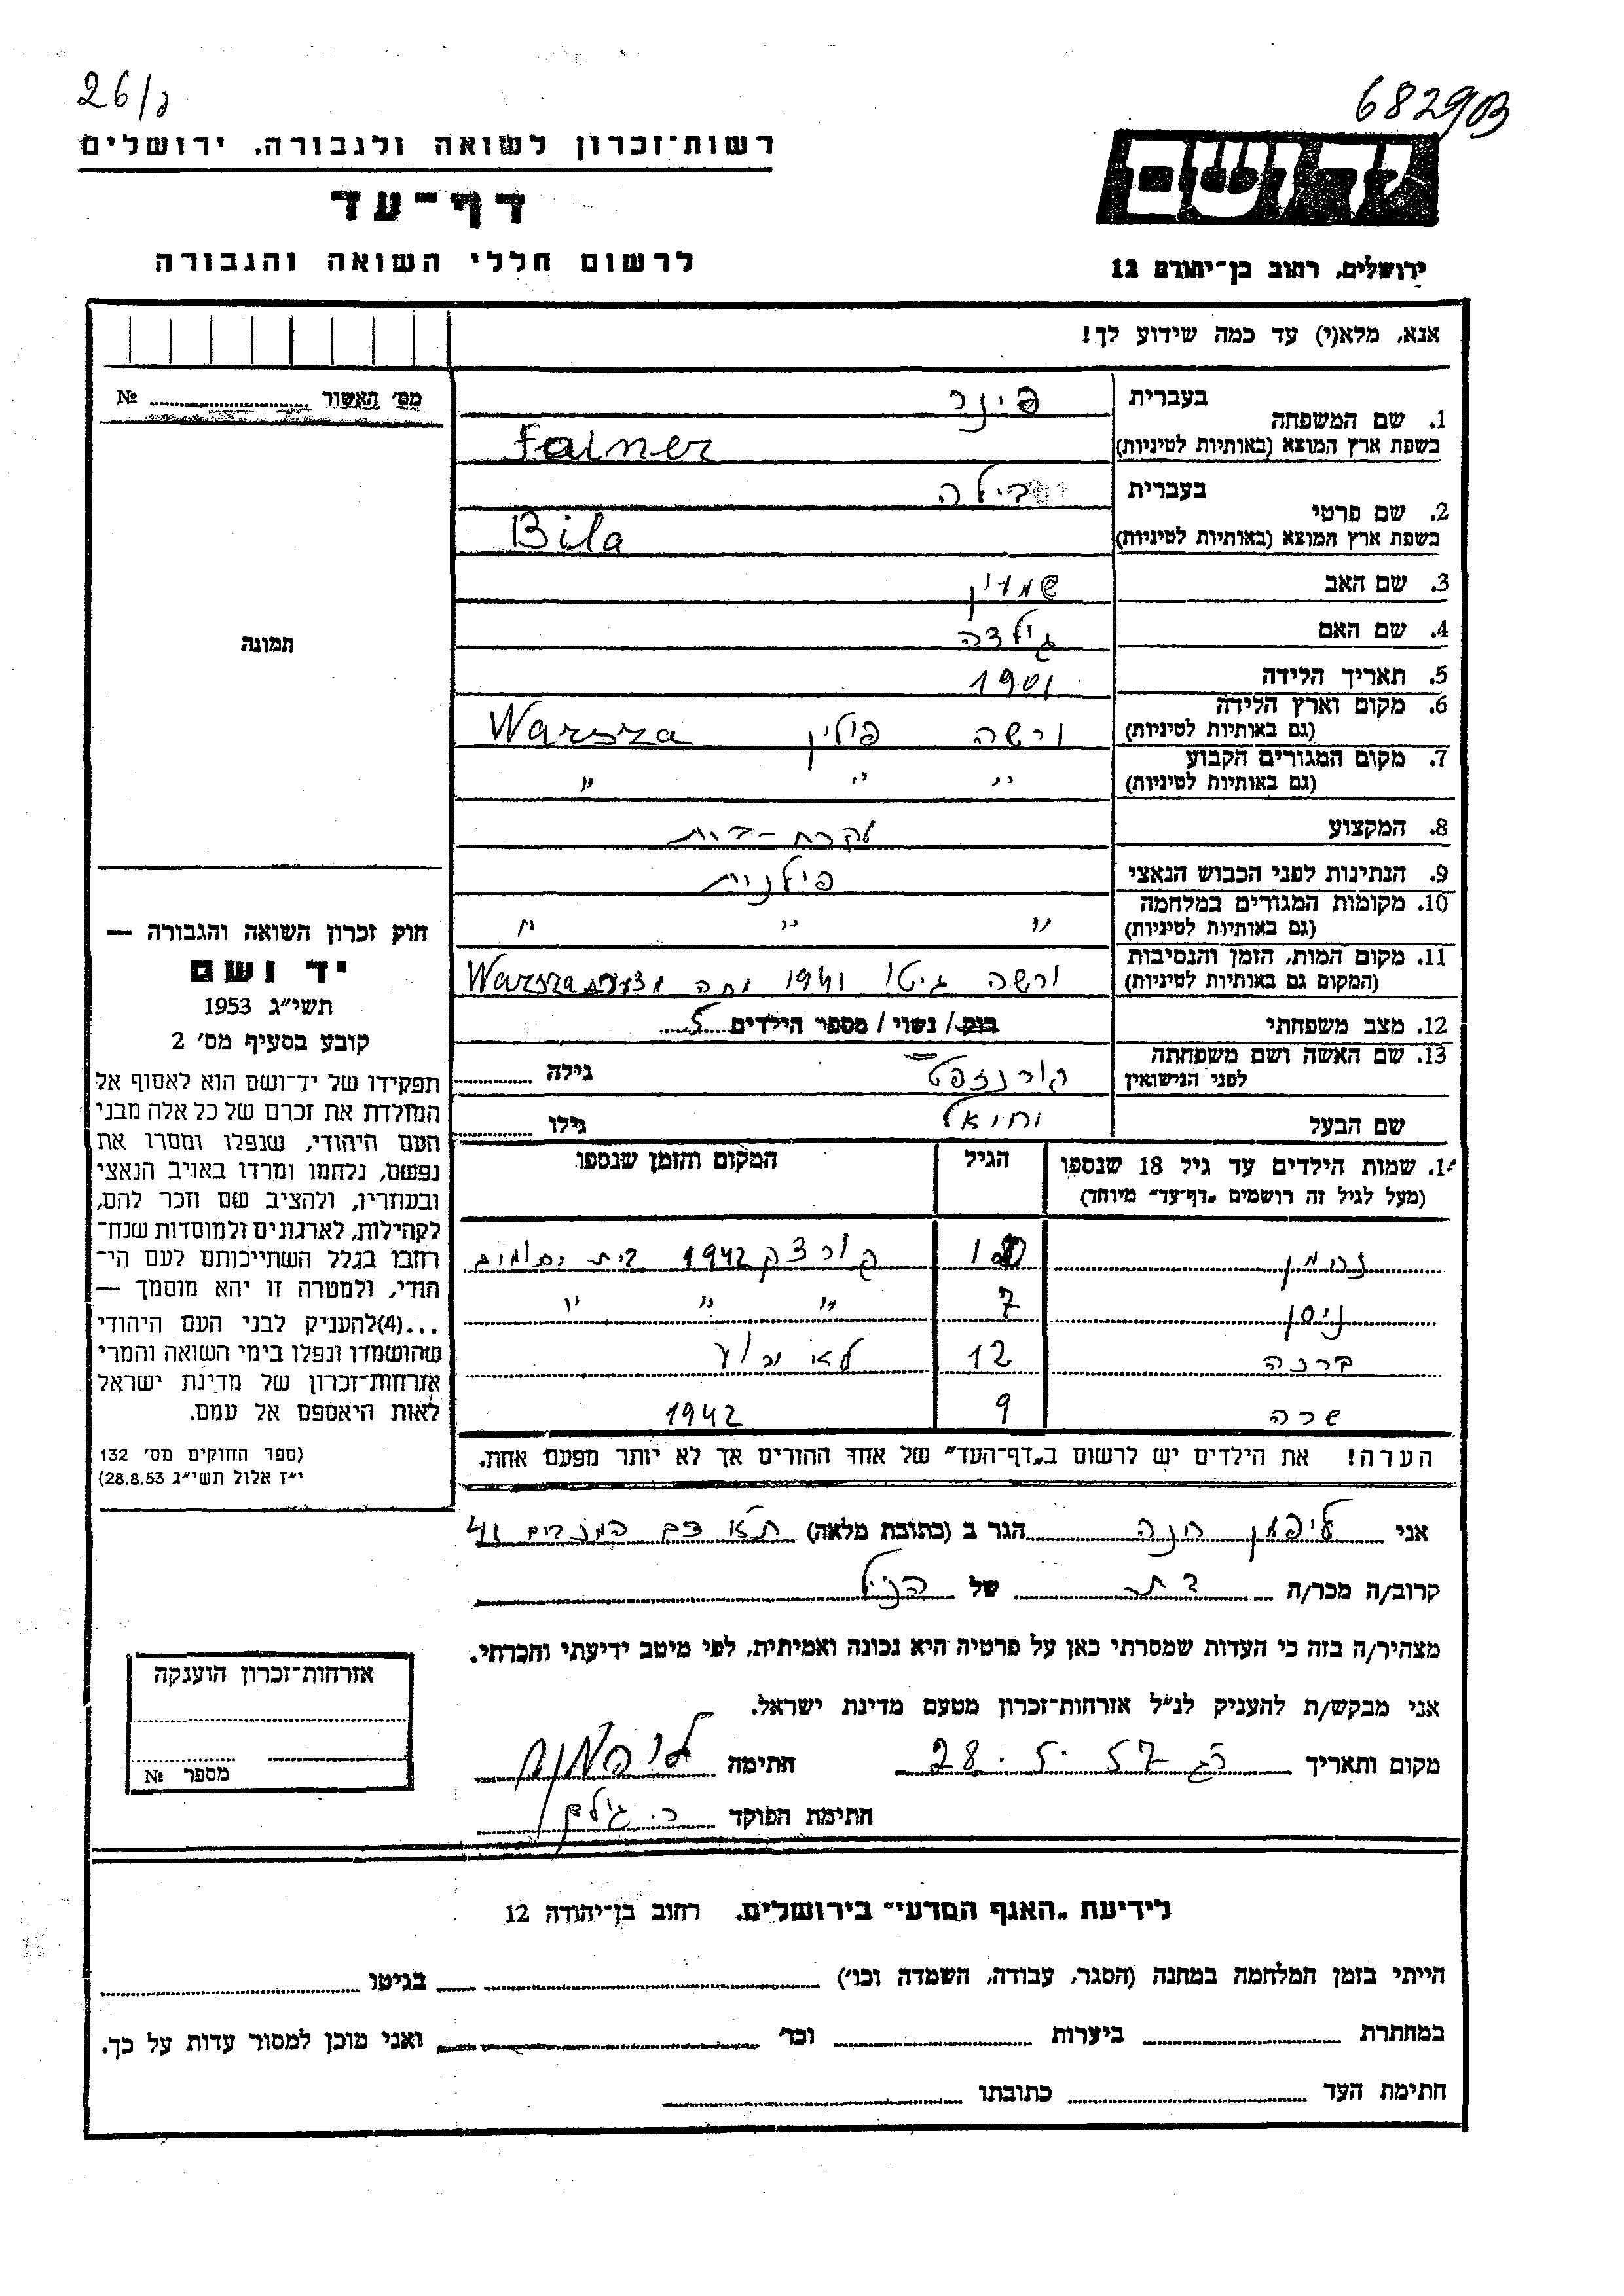 26/ג
682903
רשות־זכרון לשואה ולגבורה, ירושלים
דף־עד
לרשום חללי השואה והגבורה
יד ושם
ירושלים, רחוב בן־יהודה 12
אנא, מלא(י) עד כמה שידוע לך!
מס׳ האשור № 
1. שם המשפחה
בעברית פינר
בשפת ארץ המוצא (באותיות לטיניות) Fainer
2. שם פרטי
בעברית בילה
בשפת ארץ המוצא (באותיות לטיניות) Bila
3. שם האב שמעון
4. שם האם גולדה
5. תאריך הלידה 1901
6. מקום וארץ הלידה ורשה פולין Warsza
(גם באותיות לטיניות)
7. מקום המגורים הקבוע " " "
(גם באותיות לטיניות)
8. המקצוע עקרת־בית
9. הנתינות לפני הכבוש הנאצי פולנית
10. מקומות המגורים במלחמה " " "
(גם באותיות לטיניות)
11. מקום המות, הזמן והנסיבות ורשה גיטו 1941 מתה Warsza
(המקום גם באותיות לטיניות)
12. מצב משפחתי רוק / נשוי / מספר הילדים 5
13. שם האשה ושם משפחתה
לפני הנישואין גילה
שם הבעל גילו
14. שמות הילדים עד גיל 18 שנספו הגיל המקום והזמן שנספו
(מעל לגיל זה רושמים „דף־עד״ מיוחד)
1942 בית יתומים
ניסן 7 " " "
ברכה 12 לא ידוע
שרה 9 1942
הערה! את הילדים יש לרשום ב„דף־העד״ של אחד ההורים אך לא יותר מפעם אחת.
תמונה
חוק זכרון השואה והגבורה —
יד ושם
תשי״ג 1953
קובע בסעיף מס׳ 2
תפקידו של יד־ושם הוא לאסוף אל
המולדת את זכרם של כל אלה מבני
העם היהודי, שנפלו ומסרו את
נפשם, נלחמו ומרדו באויב הנאצי
ובעוזריו, ולהציב שם וזכר להם,
לקהילות, לארגונים ולמוסדות שנח־
רחבו בגלל השתייכותם לעם הי־
הודי, ולמטרה זו יהא מוסמך —
...(4)להעניק לבני העם היהודי
שהושמדו ונפלו בימי השואה והמרי
אזרחות־זכרון של מדינת ישראל
לאות היאספם אל עמם.
(ספר החוקים מס׳ 132
י״ז אלול תשי״ג 28.8.53)
אני ליפמן חנה הגר ב (כתובת מלאה) ת״א 41
קרוב/ה מכר/ה בתה של הנ״ל
מצהיר/ה בזה כי העדות שמסרתי כאן על פרטיה היא נכונה ואמיתית, לפי מיטב ידיעתי והכרתי.
אני מבקש/ת להעניק לנ״ל אזרחות־זכרון מטעם מדינת ישראל.
מקום ותאריך ר״ג 28.5.57 חתימה
חתימת הפוקד
אזרחות־זכרון הוענקה
מספר №
לידיעת „האגף המדעי״ בירושלים, רחוב בן־יהודה 12
הייתי בזמן המלחמה במחנה (הסגר, עבודה, השמדה וכו׳) בגיטו
במחתרת ביערות וכו׳ ואני מוכן למסור עדות על כך.
חתימת העד כתובתו